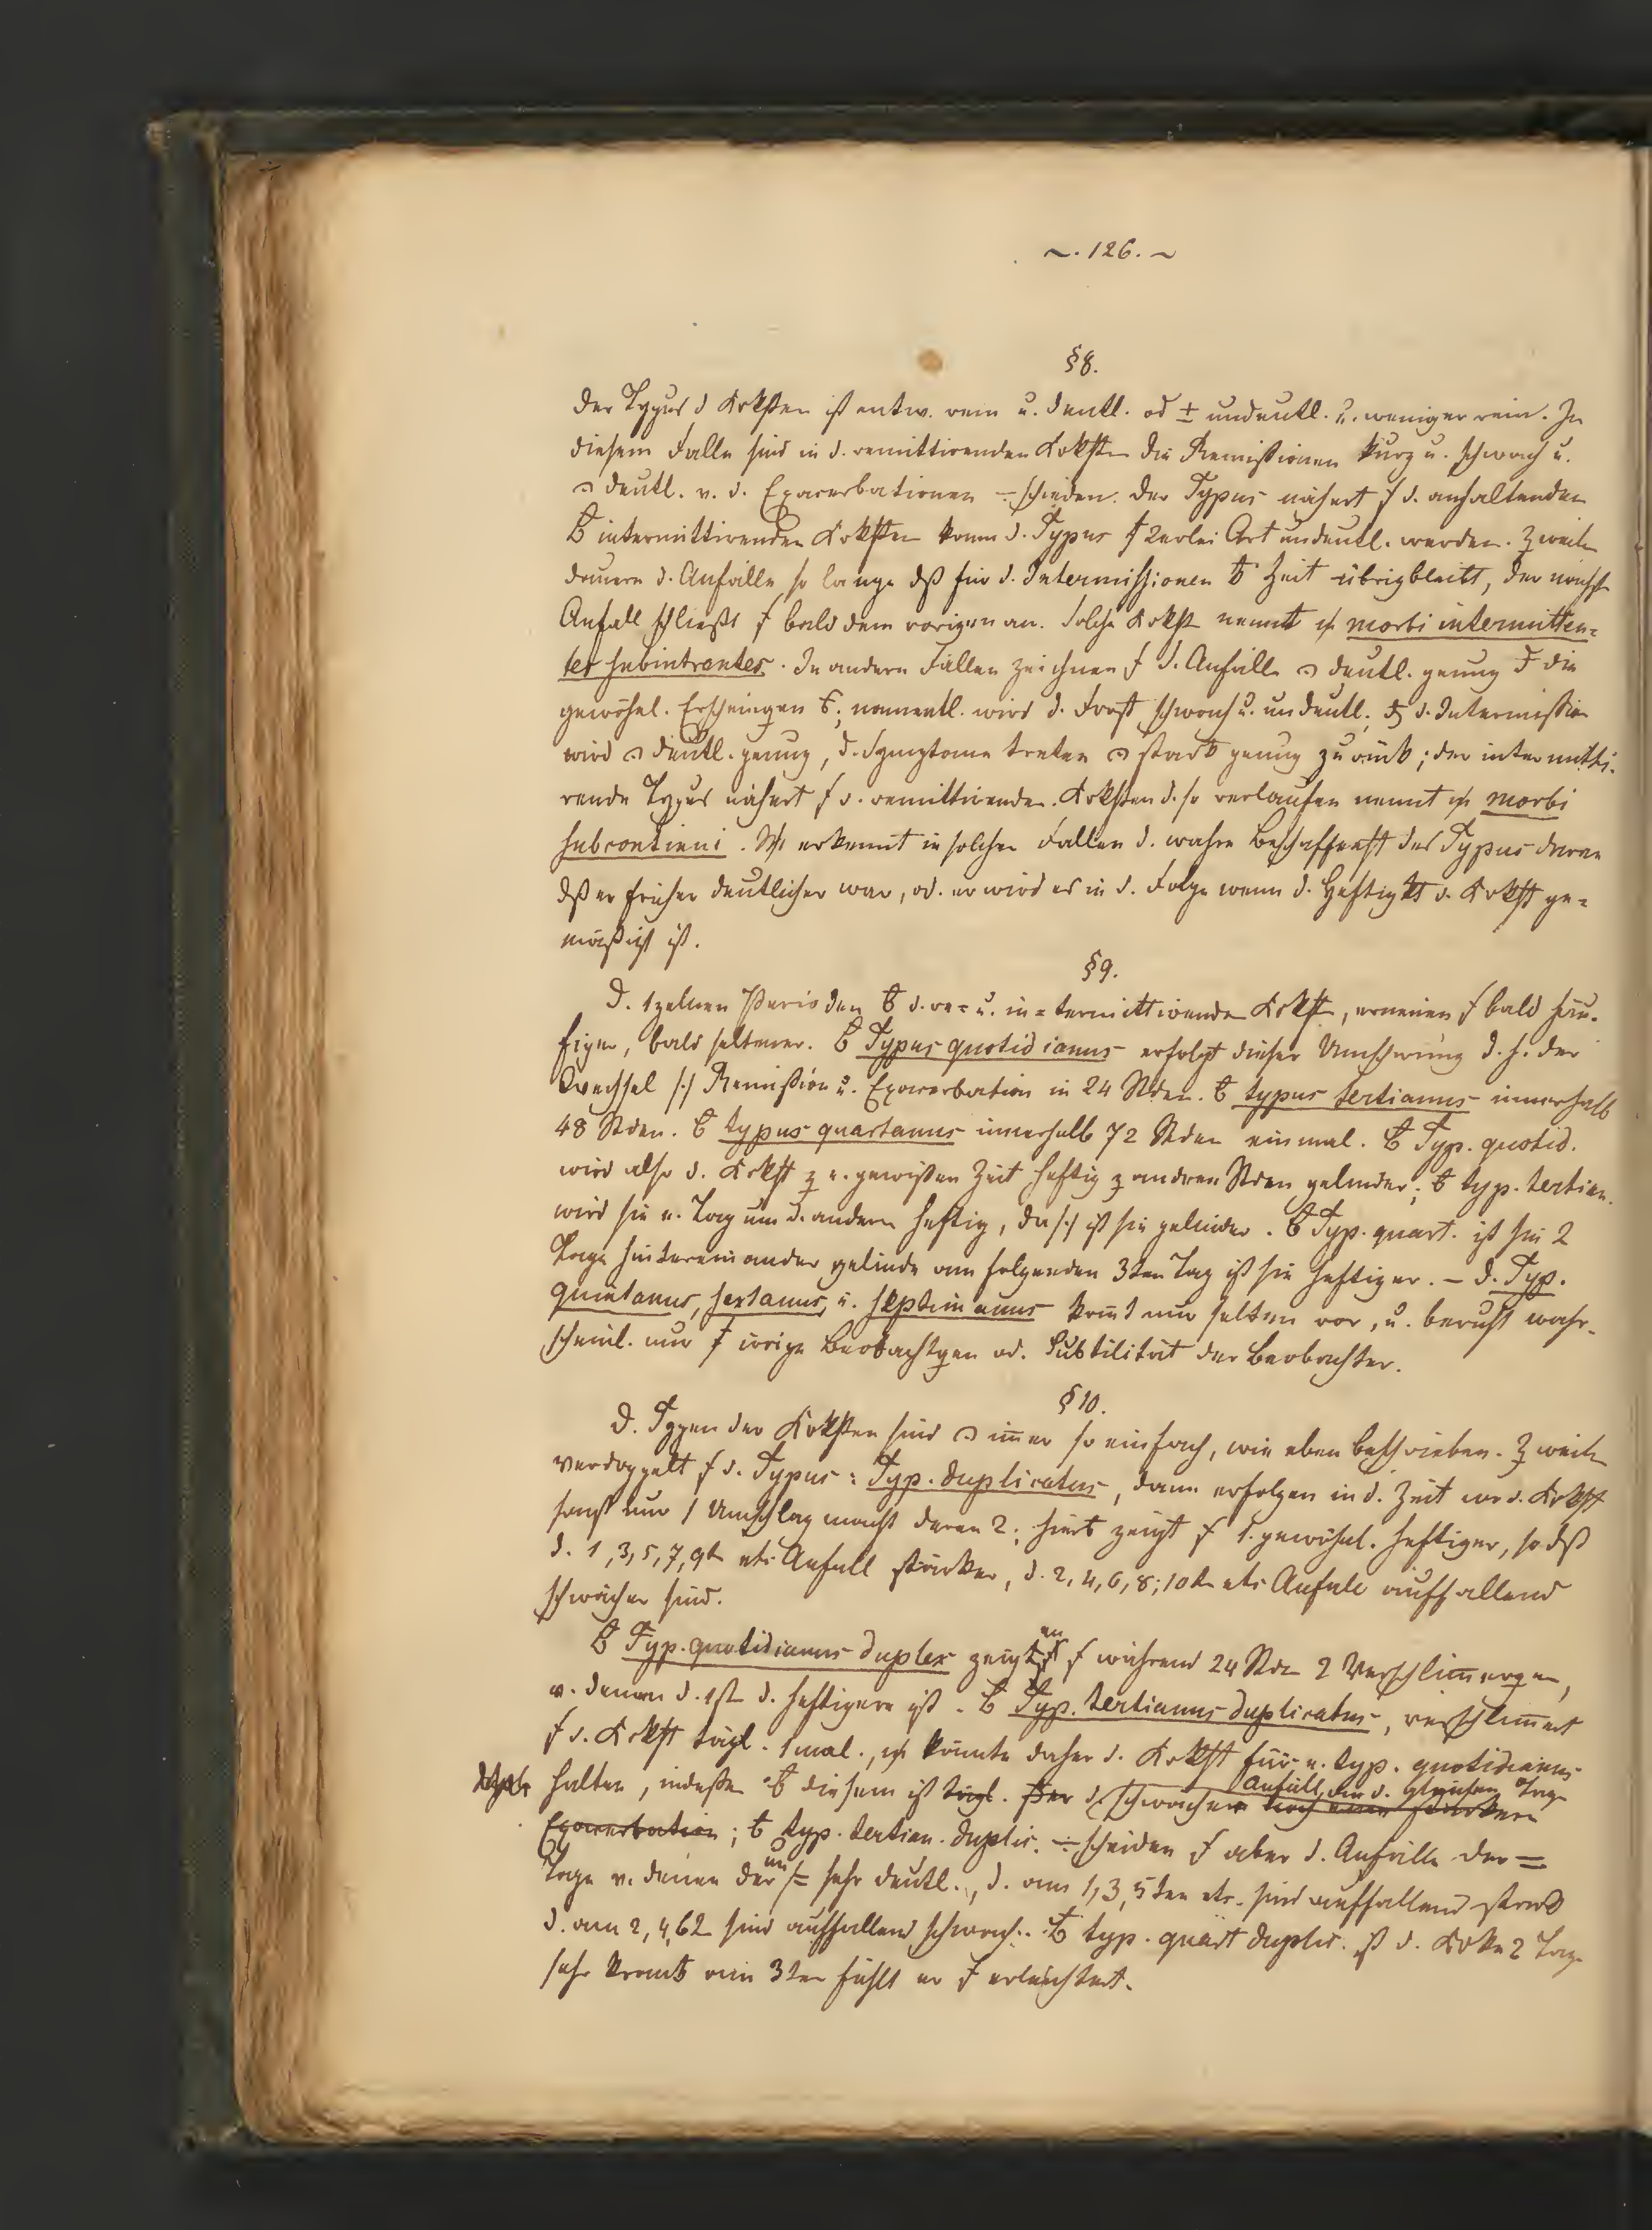 ~. 126. ~
§ 8.
Der Typus d Krkhten ist entw. rein u. deutl. od ± undeutl. u. weniger rein. In
diesem Falle sind in d. remittirenden Krkhten die Remißionen kurz u. schwach u.
deutl. v. d. Exacerbationen ÷schieden. Der Typus nähert s d. anhaltenden
intermittirenden Krkhten kann d. Typus 2erlei Art undeutl. werden. Zweilen
dauern d. Anfälle so lange dß für d. Intermissionen Zeit übrigbleibt, der nächste
Anfall schließt bald dem vorigen an. Solche Krkht nennt morbi intermitten=
tes subintrantes. In andern Fällen zeichnen d. Anfälle deutl. genug die
gewöhnl. Erscheingen; namentl. wird d. Frost schwach u. undeutl. d. Intermißion
wird deutl. genug, d. Symptome treten stark genug zurück; der intermitti-
rende Typus nähert d. remittirenden. Krkhten d. so verlaufen nennt morbi
subcontinui. erkennt in solchen Fällen d. wahre Beschaffenht des Typus daran
dß er früher deutlicher war, od. er wird es in d. Folge wenn d. Heftigkt d. Krkht ge=
mäßigt ist.
§ 9.
D. 1zelnen Perioden d. re= u. in=termittirende Krkht, erneuen bald häu-
figer, bald seltener. Typus quotidianus erfolgt dieser Umschwung d. h. der
Wechsel /:/ Remißion u. Exacerbation in 24 Stden. typus tertianus innerhalb
48 Stden. typus quartanus innerhalb 72 Stden einmal. Typ. quotid.
wird also d. Krkht z e. gewißen Zeit heftig z andren Stden gelinder; typ. tertian.
wird sie e. Tag um d. andern heftig, da/:/ ist sie gelinder. Typ. quart. ist sie 2
Tage hintereinander gelinde am folgenden 3ten Tag ist sie heftiger. – D. Typ.
quintanus, sextanus, u. septimanus komt nur selten vor, u. beruht wahr-
scheinl. nur irrige Beobachtgen od. Subtilität der Beobachter.
§ 10.
D. Typen der Krkhten sind imer so einfach, wie eben beschrieben. Zweilen
verdoppelt d. Typus: Typ. duplicatus, dann erfolgen in d. Zeit wo d. Krkht
sonst nur 1 Umschlag macht deren 2; zeigt 1. gewöhnl. heftiger, so dß
d. 1, 3, 5, 7, 9te etc Anfall stärker, d. 2, 4, 6, 8, 10te etc Anfall auffallend
schwächer sind.
Typ. quotidianus duplex zeigen während 24 Stdn 2 Verschlimergen,
v. denen d. 1ste d. heftigere ist. Typ. tertianus duplicatus, verschlimert
d. Krkht tägl. 1mal, könnte daher d. Krkht für e. typ. quotidianus
halten, indeßen diesem ist tägl. Der d. schwächere Anfall, an d. gleichen Tage
Exacerbation; typ. tertian. duplic. ÷scheiden aber d. Anfälle der =
Tage v. denen der un/= sehr deutl., d. am 1, 3, 5ten etc. sind auffallend stark
d. am 2, 4, 6t sind auffallend schwach. typ. quart duplic. ist d. Krke 2 Tage
sehr krank am 3ten fühlt er erleichtert.